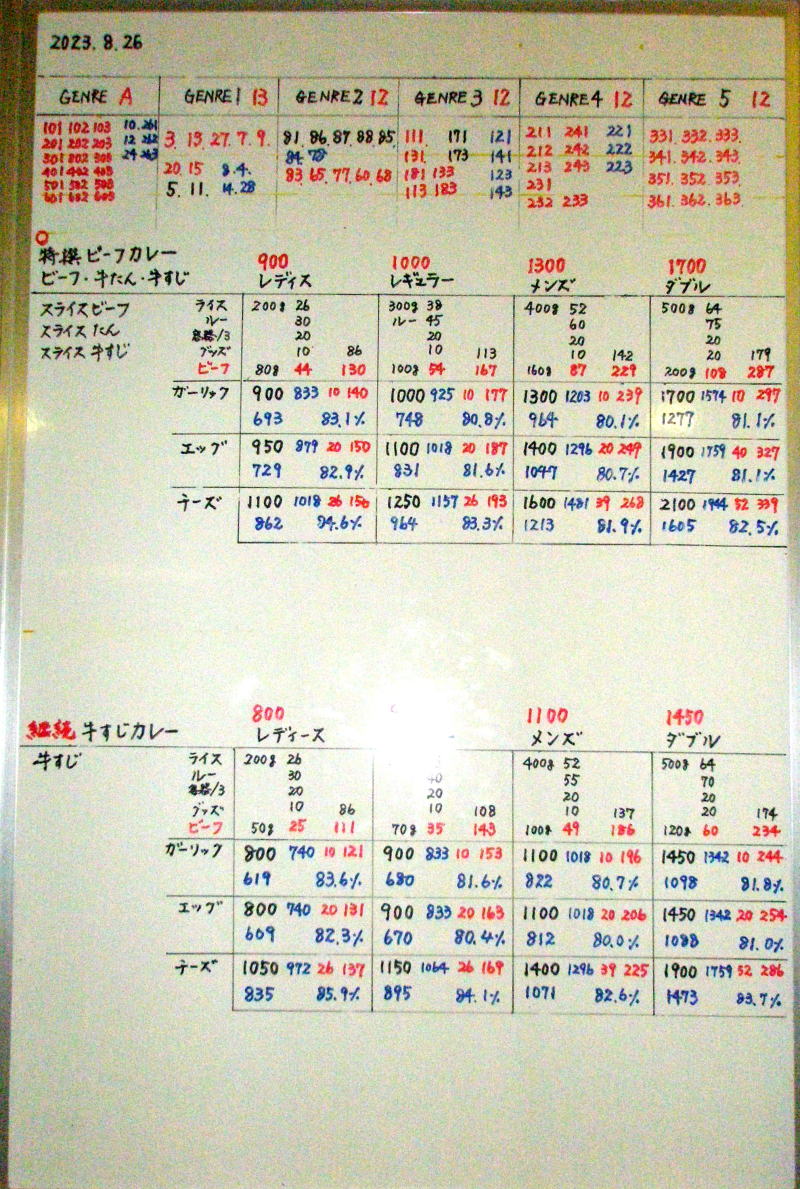 2023.8.26
GENRE A GENRE 1 13 GENRE 2 12 GENRE 3 12 GENRE 4 12 GENRE 5 12
101 102 103 10.261 3. 13. 27. 7. 9. 81. 86. 87. 88. 85. 111. 171 121 211 241 221 331. 332. 333.
201 202 203 12 262 84 78 131. 173 141 212 242 222 341. 342. 343.
301 302 303 24 263 20. 15 8. 4. 83. 65. 77. 60. 68 181 133 123 213 243 223 351. 352. 353.
401 402 403 5. 11. 14. 28 113 183 143 231 361. 362. 363.
501 502 503 232 233
601 602 603
特撰ビーフカレー 900 1000 1300 1700
ビーフ・牛たん・牛すじ レディス レギュラー メンズ ダブル
スライスビーフ ライス 200g 26 300g 38 400g 52 500g 64
スライスたん ルー 30 ルー 45 60 75
/3 20 20 20 20
スライス牛すじ グッズ 10 86 10 113 10 142 20 179
ビーフ 80g 44 130 100g 54 167 160g 87 229 200g 108 287
ガーリック 900 833 10 140 1000 925 10 177 1300 1203 10 239 1700 1574 10 297
693 83.1% 748 80.8% 964 80.1% 1277 81.1%
エッグ 950 879 20 150 1100 1018 20 187 1400 1296 20 249 1900 1759 40 327
729 82.9% 831 81.6% 1047 80.7% 1427 81.1%
チーズ 1100 1018 26 156 1250 1157 26 193 1600 1481 39 268 2100 1944 52 339
862 84.6% 964 83.3% 1213 81.9% 1605 82.5%
800 1100 1450
継続 牛すじカレー レディース メンズ ダブル
牛すじ ライス 200g 26 400g 52 500g 64
ルー 30 40 55 70
/3 20 20 20 20
グッズ 10 86 10 108 10 137 20 174
ビーフ 50g 25 111 70g 35 143 100g 49 186 120g 60 234
ガーリック 800 740 10 121 900 833 10 153 1100 1018 10 196 1450 1342 10 244
619 83.6% 680 81.6% 822 80.7% 1098 81.8%
エッグ 800 740 20 131 900 833 20 163 1100 1018 20 206 1450 1342 20 254
609 82.3% 670 80.4% 812 80.0% 1088 81.0%
チーズ 1050 972 26 137 1150 1064 26 169 1400 1296 39 225 1900 1759 52 286
835 85.9% 895 84.1% 1071 82.6% 1473 83.7%